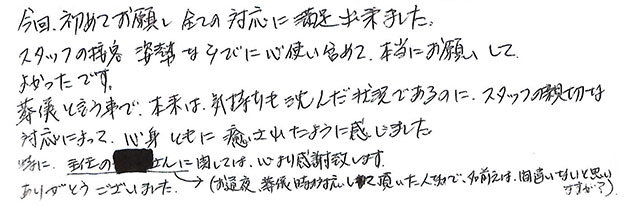 今回、初めてお願いし全ての対応に満足出来ました。
スタッフの接客 姿勢ならびに心使い含めて、本当にお願いして
よかったです。
葬儀と言う事で、本来は、気持ちも沈んだ状況であるのに、スタッフの親切な
対応によって、心身ともに癒されたように感じました
特に、主任の さんに関しては、心より感謝致します。
ありがとうございました。 (お通夜、葬儀時対応して頂いた人なので、名前は、間違いないと思い
ますが?)